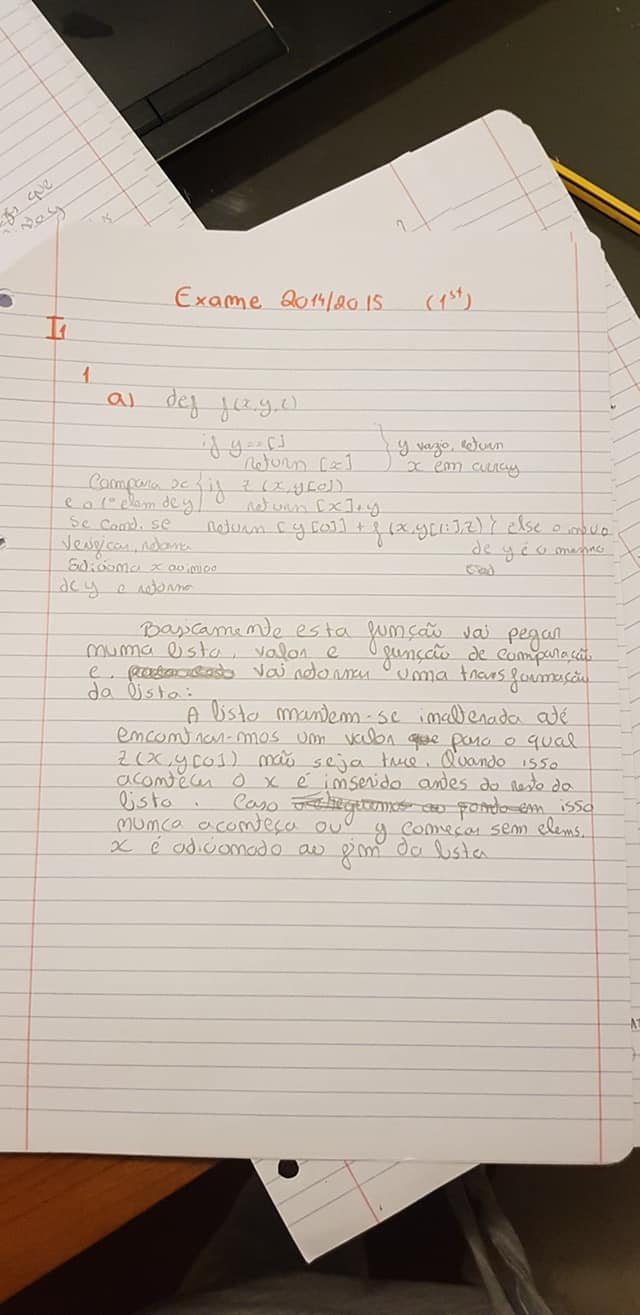 Exame 2014/2015 (1st)
I1
1
a) def f(x,y,z)
if y==[]
return [x]
} y vazio, return
x em array
Compara x
e o 1º elem de y
se cond. se
verificar, retorna
adiciona x ao inicio
de y e retorna
if z(x,y[0])
return [x]+y
return [y[0]] + f(x,y[1:],z) } else o novo
de y é o mesmo
Basicamente esta função vai pegar
numa lista, valor e função de comparação
e vai retornar uma transformação
da lista:
A lista mantem-se inalterada até
encontrar-mos um valor que para o qual
z(x,y[0]) não seja true. Quando isso
acontecer o x é inserido antes do resto da
lista. Caso chegarmos ao ponto em isso
nunca aconteça ou y começar sem elems.
x é adicionado ao fim da lista